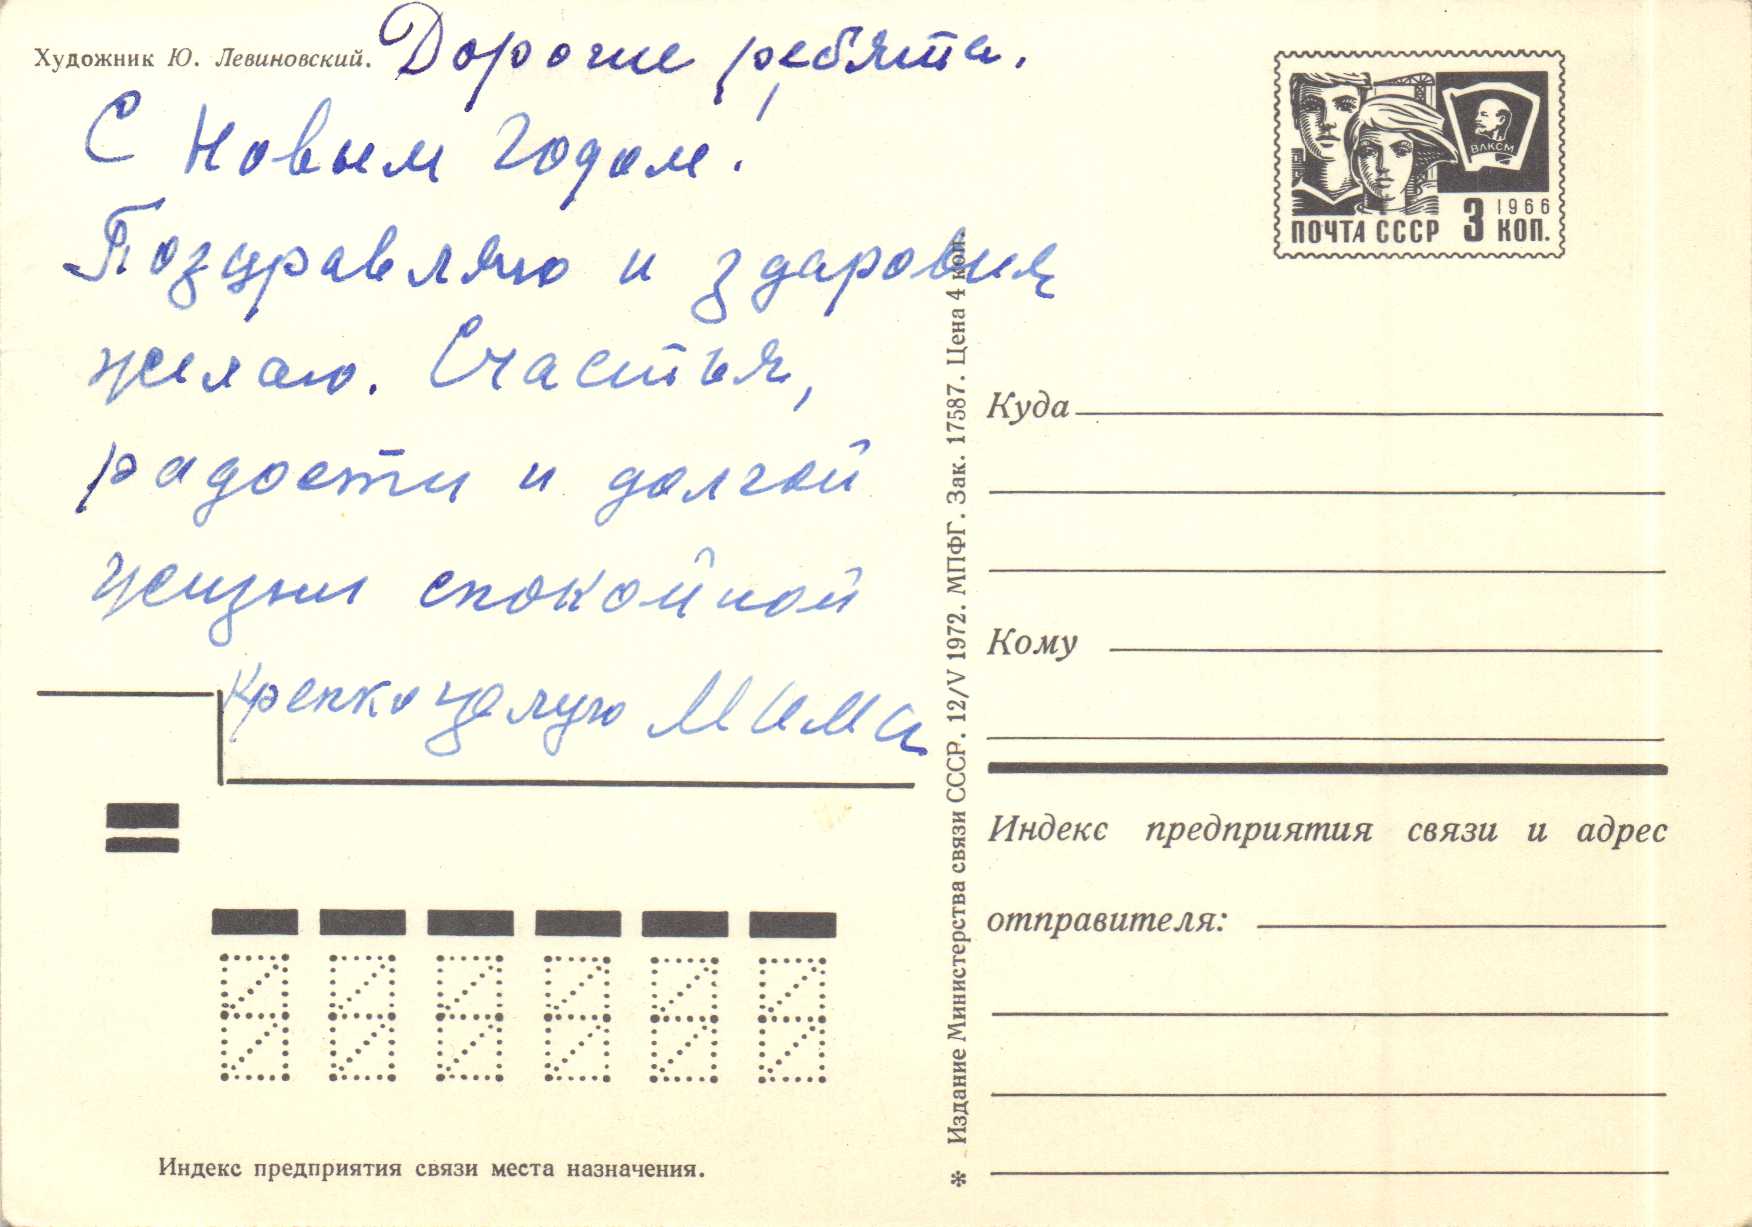 Художник Ю. Левиновский.
Дорогие ребята.
С Новым годом!
Поздравляю и здаровия
желаю. Счастья,
радости и долгой
жизни спокойной
Крепко целую Мима
ВЛКСМ
1966
ПОЧТА СССР 3 КОП.
Куда
Кому
Индекс предприятия связи и адрес
отправителя:
Индекс предприятия связи места назначения.
* Издание Министерства связи СССР. 12/V 1972. МПФГ. Зак. 17587. Цена 4 коп.